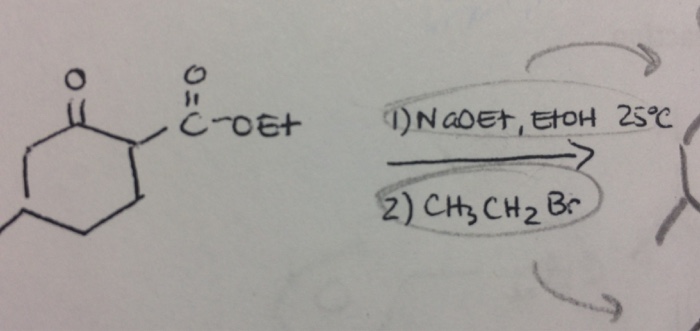 O
O
C-OEt
1) NaOEt, EtOH 25°C
2) CH3CH2Br